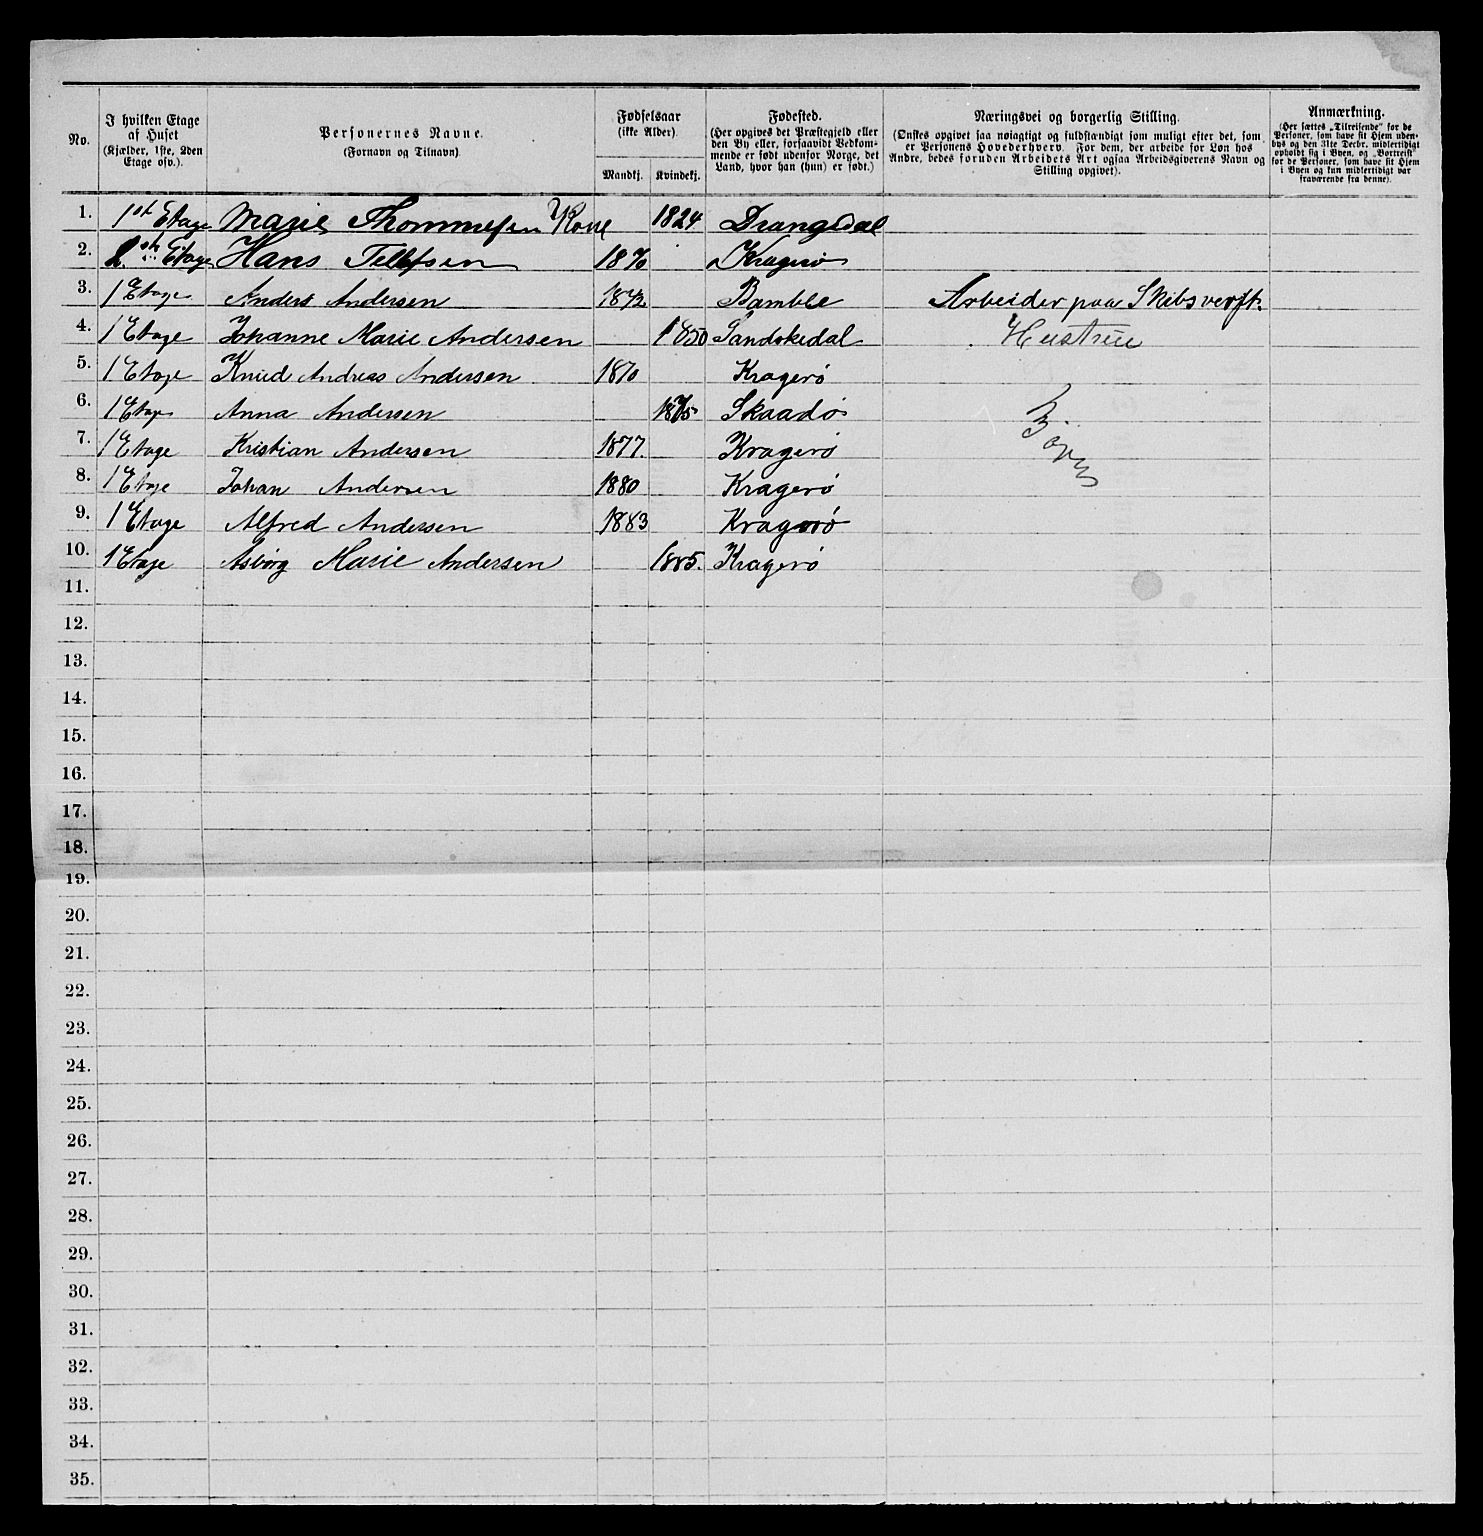 No.
I hvilken Etage af Huset (Kjælder, 1ste, 2den Etage osv.).
Personernes Navne. (Fornavn og Tilnavn)
Fødselsaar (ikke Alder)
Mandkj. Kvindekj.
Fødested. (Her opgives det Præstegjeld eller den By eller, forsaavidt Vedkommende er født udenfor Norge, det Land, hvor han (hun) er født.)
Næringsvei og borgerlig Stilling. (Ønskes opgivet saa nøiagtigt og fuldstændigt som muligt efter det, som er Personens Hovederhverv. For dem, der arbeide for Løn hos Andre, bedes foruden Arbeidets Art ogsaa Arbeidsgiverens Navn og Stilling opgivet).
Anmærkning. (Her sættes „Tilreisende" for de Personer, som have sit Hjem udenbys og den 31te Decbr. midlertidigt opholdt sig i Byen, og „Bortreist" for de Personer, som have sit Hjem i Byen og kun midlertidigt var fraværende fra denne).
1. 1st Etage Marie Thommesen Kone 1824 Drangedal
2. Etage Hans Tellefsen 1870 Kragerø
3. 1 Etage Anders Andersen Bamble Arbeider paa Skibsverft.
4. 1 Etage Johanne Marie Andersen 1850 Sandøkedal Hustrue
5. 1 Etage Knud Andreas Andersen 1870 Kragerø
6. 1 Etage Anna Andersen 1875 Skaadø
7. 1 Etage Kristian Andersen 1877. Kragerø
8. 1 Etage Johan Andersen 1880 Kragerø
9. 1 Etage Alfred Andersen 1883 Kragerø
10. 1 Etage Asbørg Marie Andersen 1885. Kragerø
11.
12.
13.
14.
15.
16.
17.
18.
19.
20.
21.
22.
23.
24.
25.
26.
27.
28.
29.
30.
31.
32.
33.
34.
35.